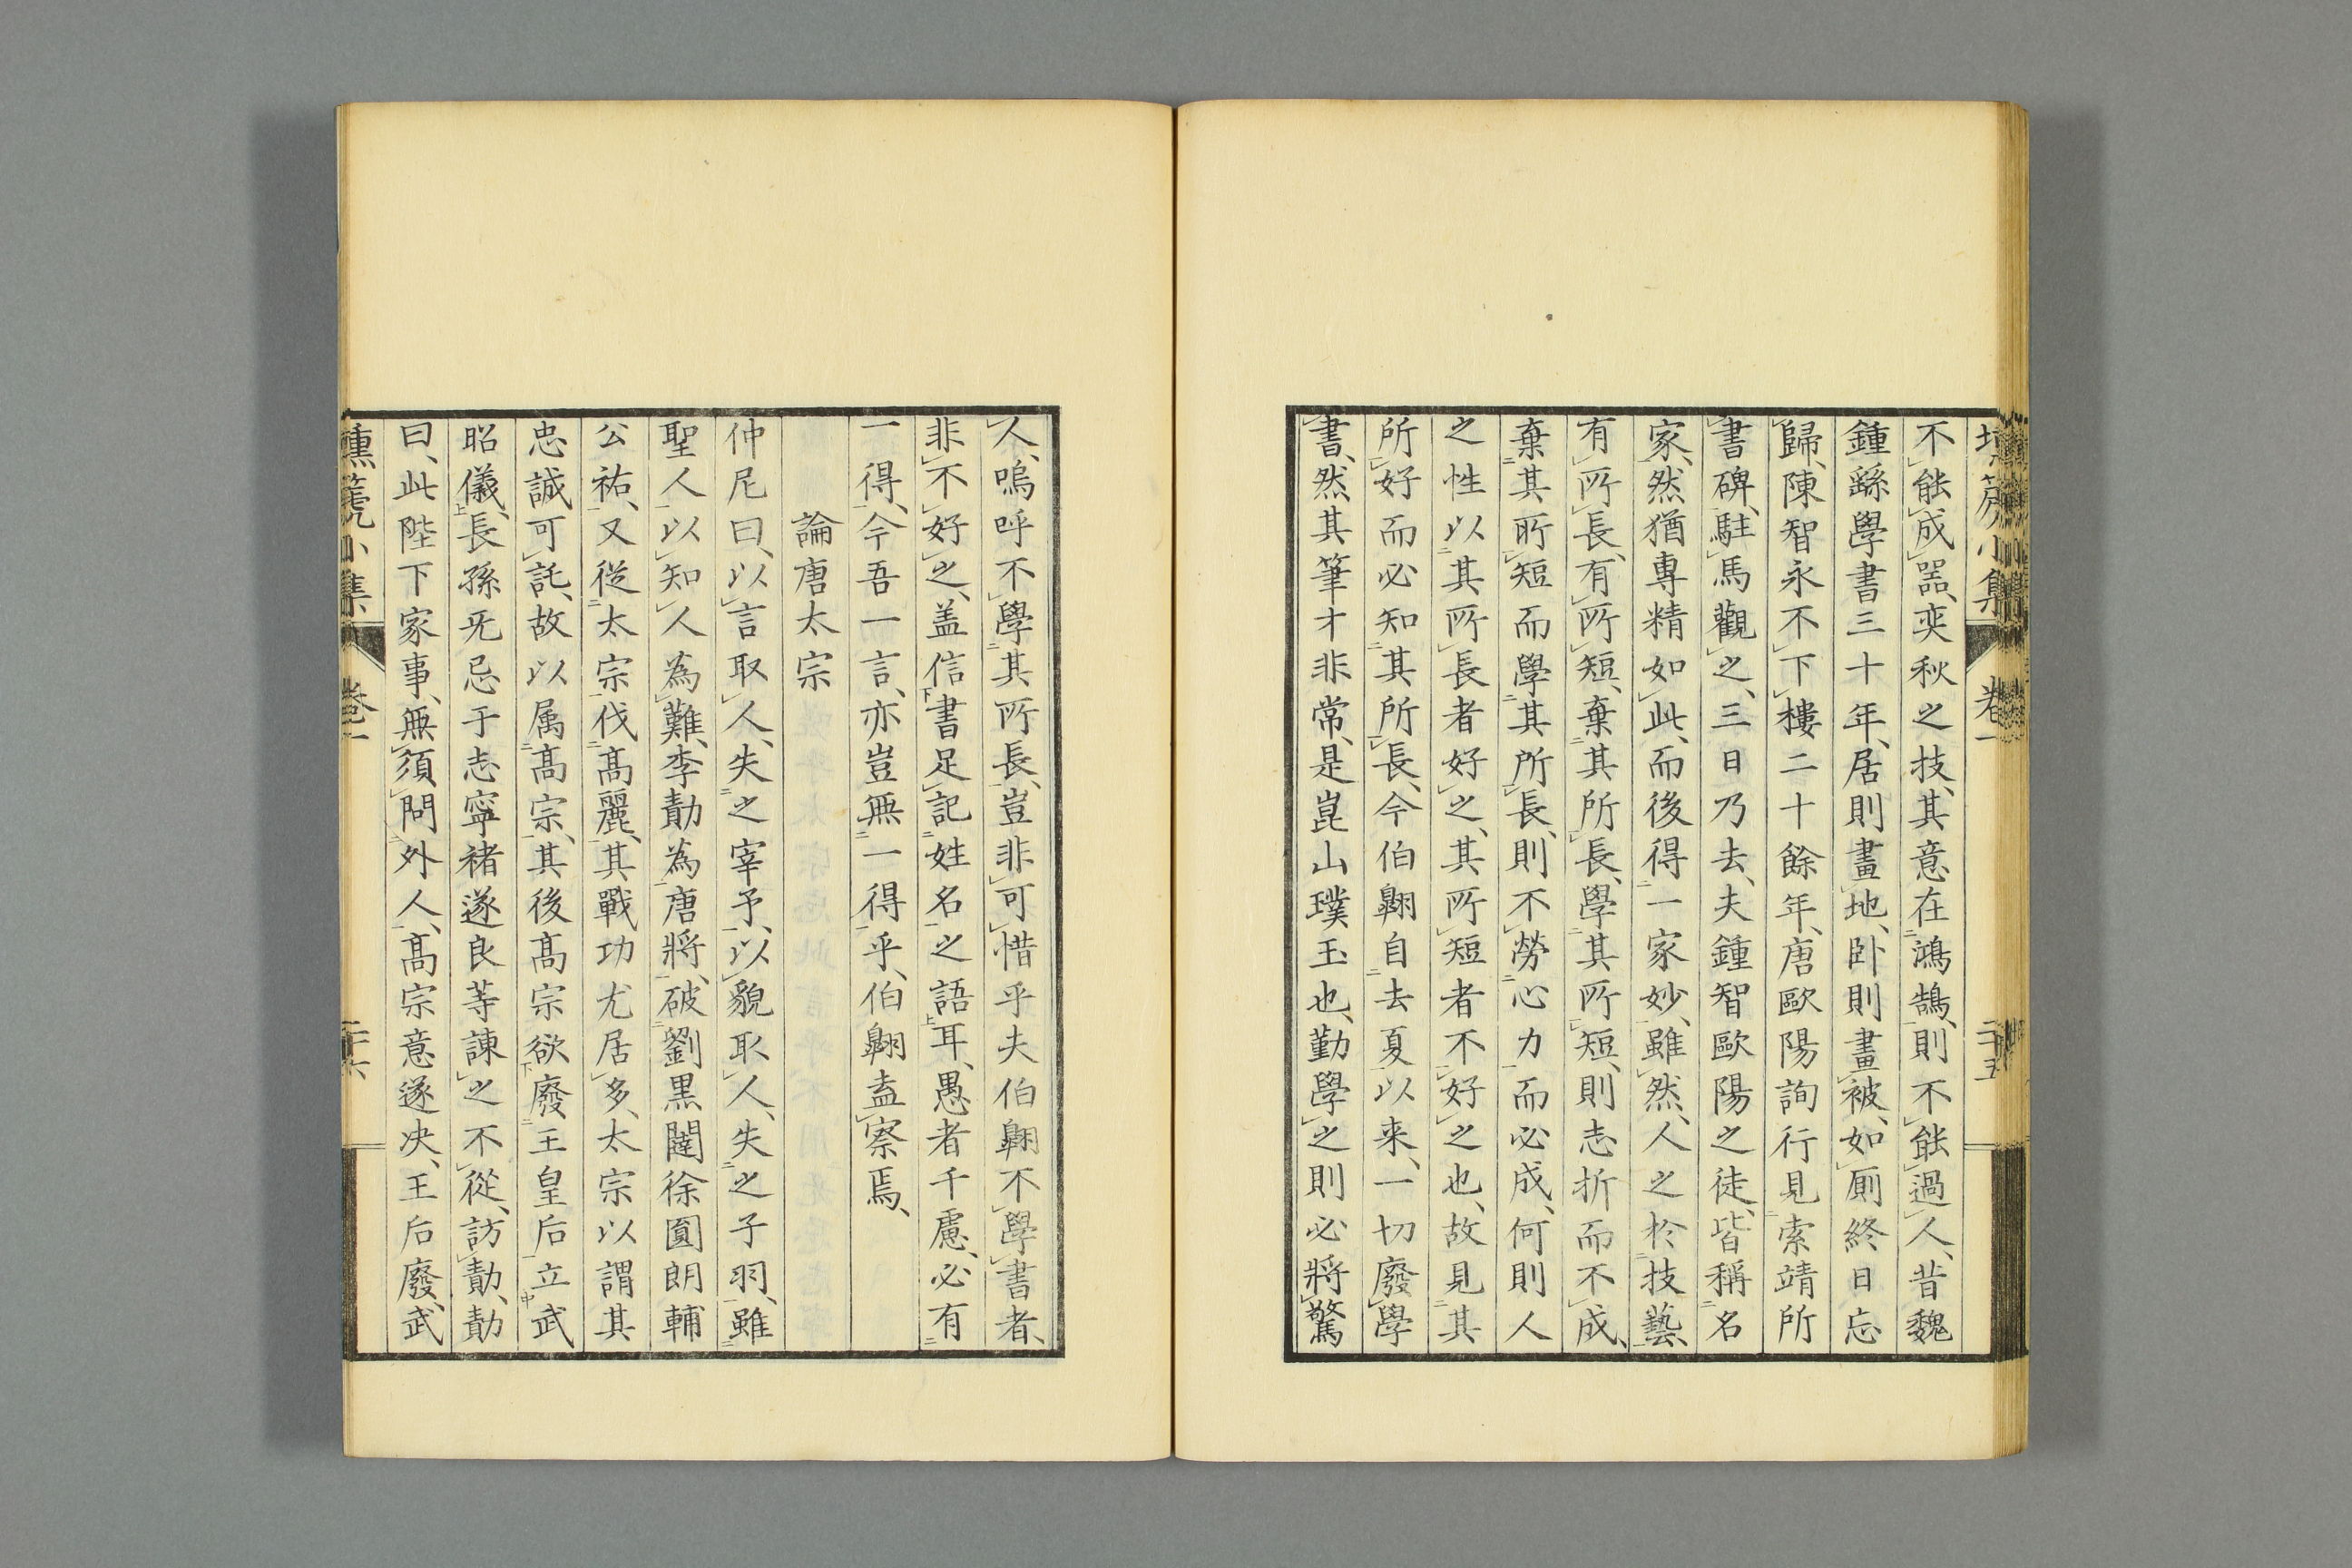 不能成器、奕秋之技、其意在鴻鵠、則不能過人、昔魏
鍾繇學書三十年、居則畫地、卧則畫被、如厠終日忘
歸、陳智永不下樓二十餘年、唐歐陽詢行見索靖所
書碑、駐馬觀之、三日乃去、夫鍾智歐陽之徒、皆稱名
家、然猶專精如此、而後得一家妙、雖然、人之於技藝、
有所長、有所短、棄其所長、學其所短、則志折而不成、
棄其所短而學其所長、則不勞心力而必成、何則人
之性以其所長者好之、其所短者不好之也、故見其
所好而必知其所長、今伯翺自去夏以来、一切廢學
書、然其筆才非常、是崑山璞玉也、勤學之則必將驚
人、嗚呼不學其所長、豈非可惜乎夫伯翺不學書者、
非不好之、盖信書足記姓名之語耳、愚者千慮、必有
一得、今吾一言、亦豈無一得乎、伯翺盍察焉、
論唐太宗
仲尼曰、以言取人、失之宰予、以貌取人、失之子羽、雖
聖人以知人為難、李勣為唐將、破劉黒闥徐圓朗輔
公祐、又從太宗伐髙麗、其戰功尤居多、太宗以謂其
忠誠可託、故以属髙宗、其後髙宗欲廢王皇后立武
昭儀、長孫旡忌于志寧褚遂良等諫之不從、訪勣、勣
曰、此陛下家事、無須問外人、髙宗意遂决、王后廢、武
壎篪小集 卷一 二十六